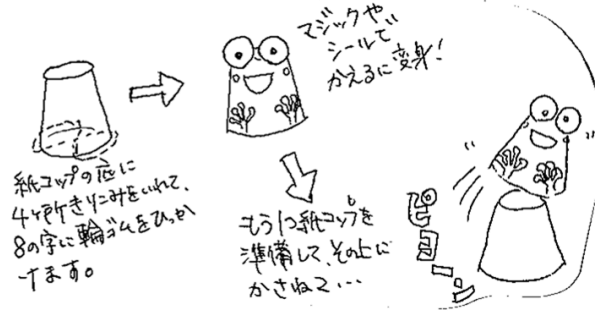 紙コップの底に
4ヶ所きりこみをいれて、
8の字に輪ゴムをひっか
けます。
マジックや
シールで
かえるに変身!
もう1つ紙コップを
準備して、その上に
かさねて・・・
ピョーン